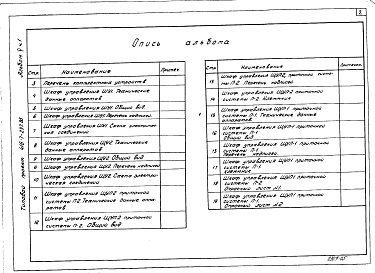 3
Опись альбома
Альбом 9 ч.1
Типовой проект
Стр. Наименование Примеч.
3 Перечень комплектных устройств
4 Шкаф управления ШУ1. Технические
данные аппаратов
5 Шкаф управления ШУ1. Общий вид
6 Шкаф управления ШУ1. Перечень надписей
7 Шкаф управления ШУ1. Схема электричес-
кая соединений
8 Шкаф управления ШУ2. Технические
данные аппаратов
9 Шкаф управления ШУ2. Общий вид
9 Шкаф управления ШУ2. Перечень надписей
10 Шкаф управления ШУ2. Схема электри-
ческая соединений
11 Шкаф управления ЩУП2 приточной
системы П-2. Технические данные аппа-
ратов
12 Шкаф управления ЩУП2 приточной
системы П-2. Общий вид
Стр. Наименование Примечан.
13 Шкаф управления ЩУП2, приточной систе-
мы П-2. Перечень надписей
14 Шкаф управления ЩУП2 приточной
системы П-2. Клеммник
15 Шкаф управления ЩУП1 приточной
системы П-1. Технические данные
аппаратов
16 Шкаф управления ЩУП1 приточной
системы П-1.
Общий вид
Шкаф управления ЩУП1 приточной
системы П-1.
Перечень надписей
17 Шкаф управления ЩУП1 приточной
системы П-1.
Клеммник
18 Шкаф управления ЩУП1 приточной
системы П-2.
Опросный лист №1.
19 Шкаф управления ЩУП1 приточной
системы П-1.
Опросный лист №2.